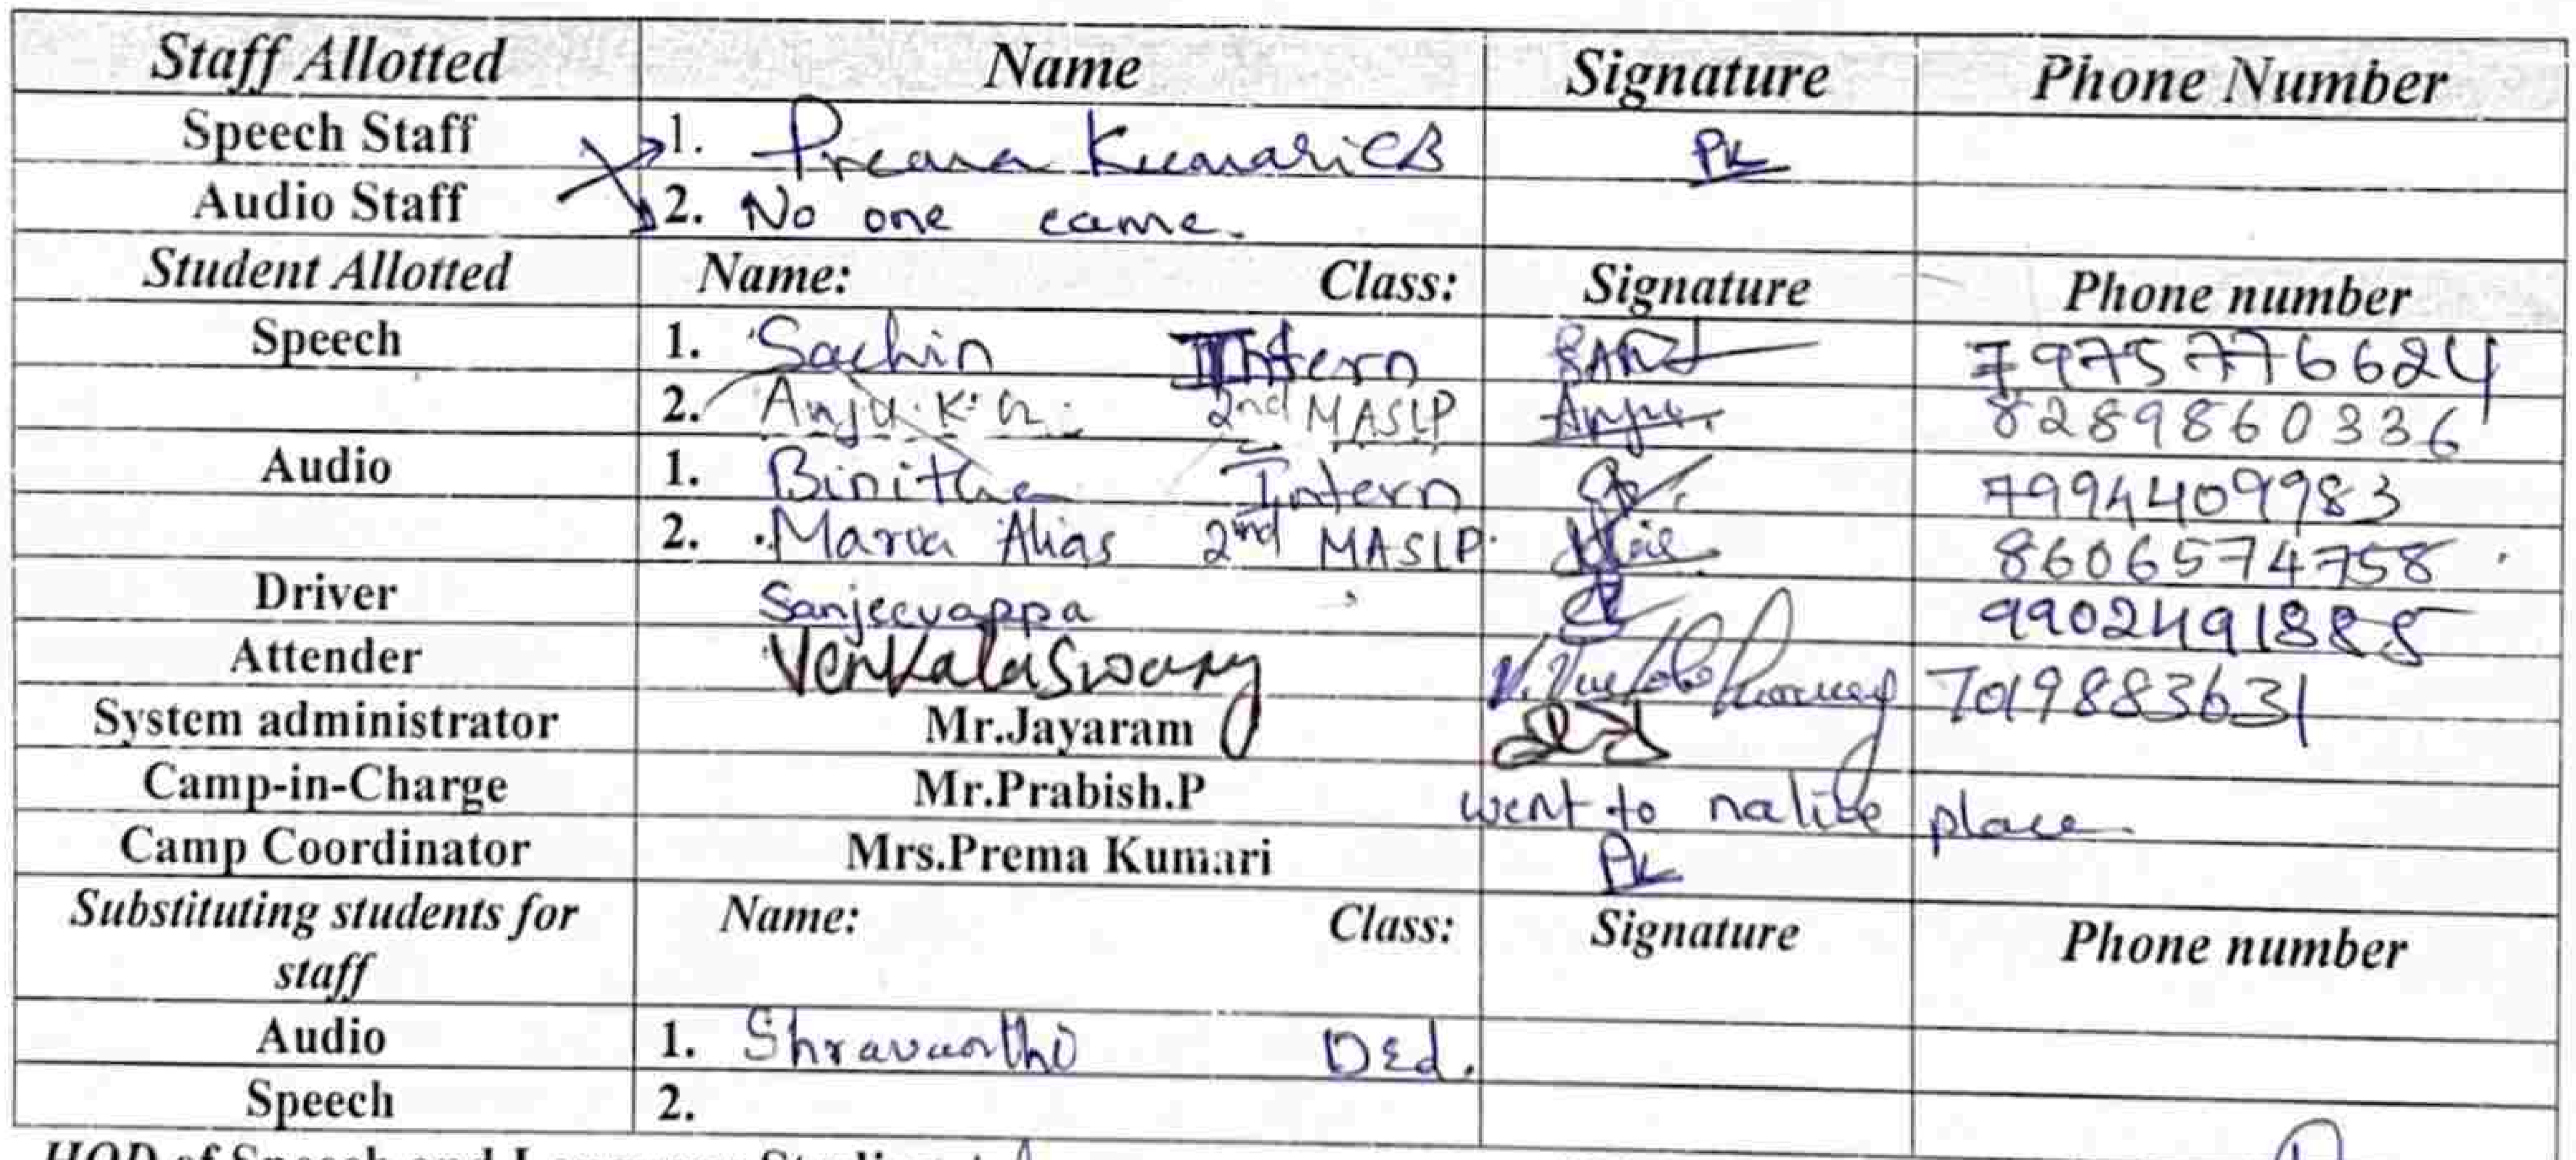 Staff Allotted Name Signature Phone Number
Speech Staff 1. Prema Kumari CB PK
Audio Staff 2. No one came.
Student Allotted Name: Class: Signature Phone number
Speech 1. Sachin Intern 7975776624
2. Anju. K. 2nd MASLP Anju. 8289860336
Audio 1. Binitha Intern 7994409983
2. Maria Alias 2nd MASLP. 8606574758
Driver Sanjeevappa 9902491885
Attender Venkalaswamy 7019883631
System administrator Mr.Jayaram
Camp-in-Charge Mr.Prabish.P went to native place.
Camp Coordinator Mrs.Prema Kumari PK
Substituting students for Name: Class: Signature Phone number
staff
Audio 1. Shravanthi DEd.
Speech 2.
HOD of Speech and Language Studies